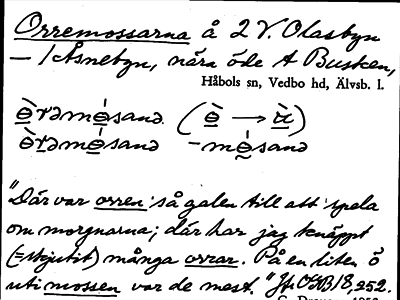 Orremossarna å 2 V. Olasbyn
– 1 Åsnebyn, nära öde t Busken,
Håbols sn, Vedbo hd, Älvsb. l.
"Där var orren så galen till att spela
om morgnarna; där har jag knäppt
(= skjutit) många orrar. På en liten ö
uti mossen var de mest." Jfr OGB 18, 252.